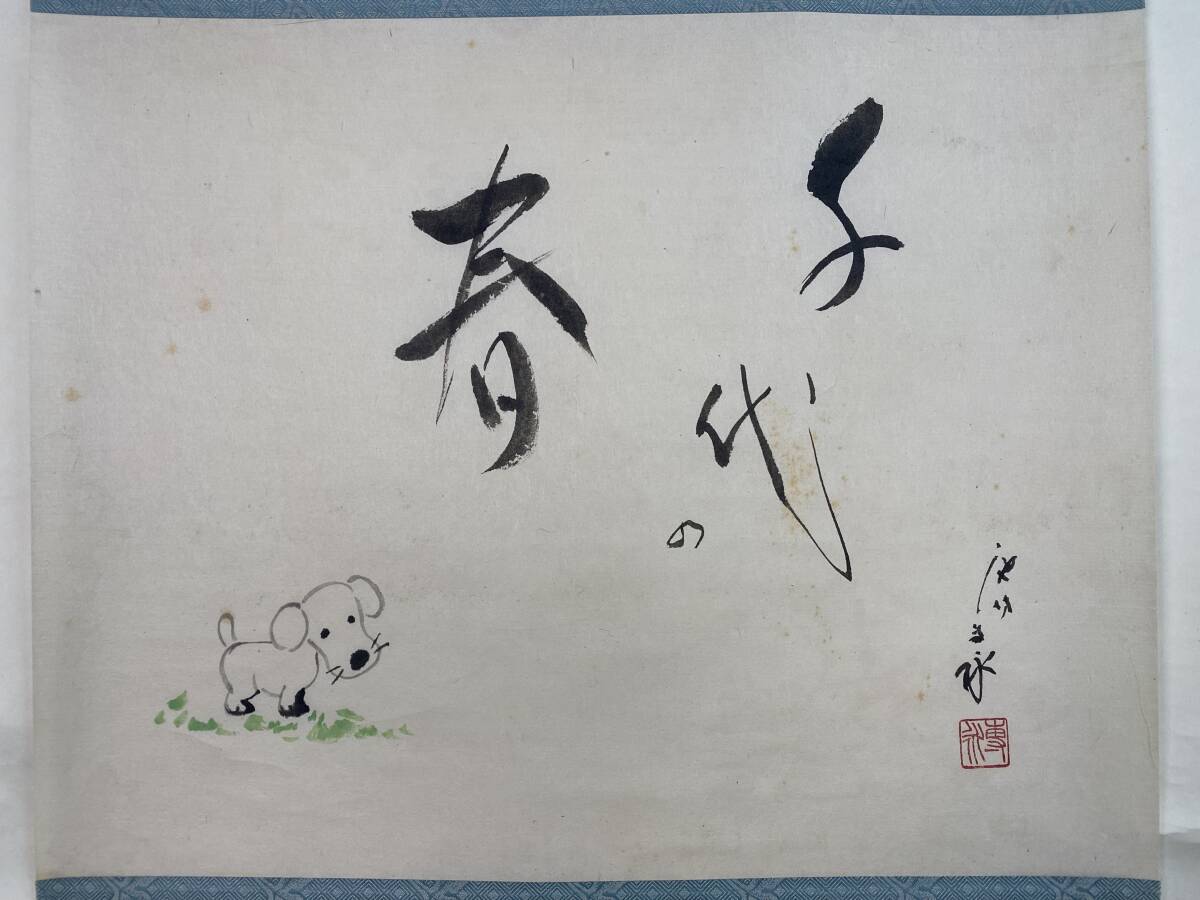 千代の
春